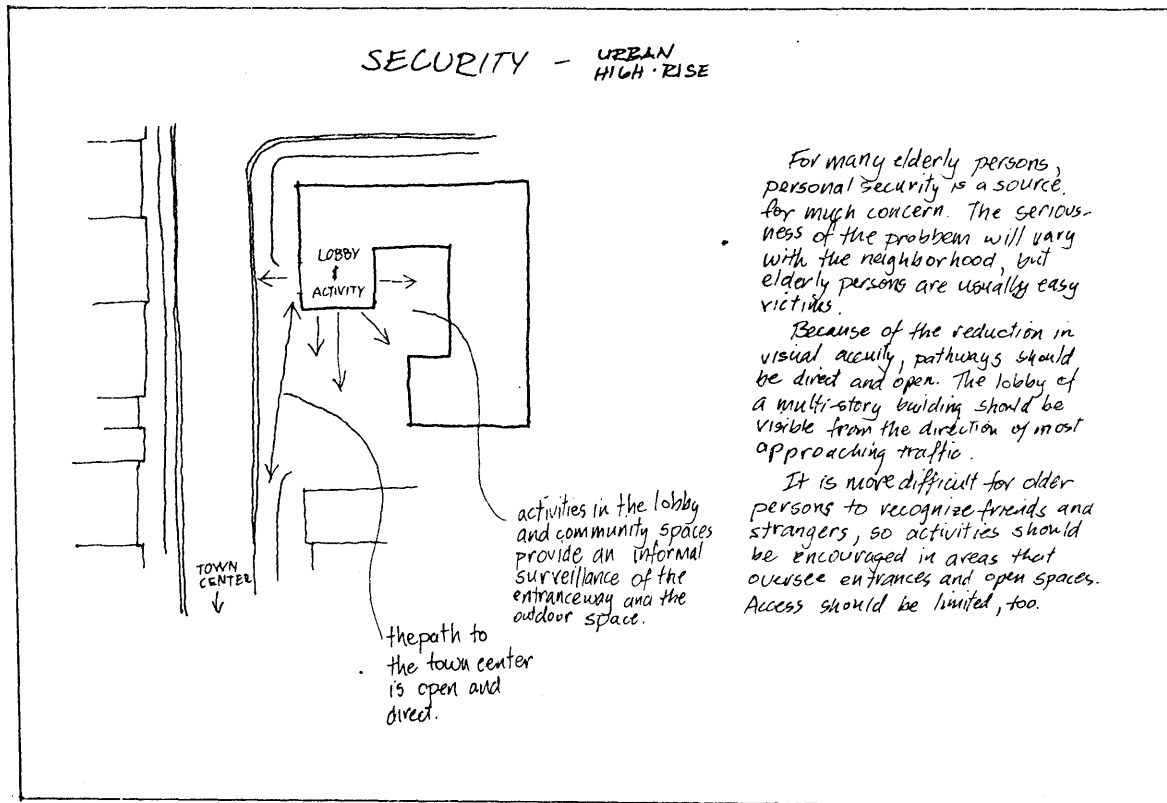 SECURITY - URBAN
HIGH·RISE
LOBBY
&
ACTIVITY
TOWN
CENTER
activities in the lobby
and community spaces
provide an informal
surveillance of the
entranceway and the
outdoor space.
the path to
the town center
is open and
direct.
For many elderly persons,
personal security is a source
for much concern. The serious-
ness of the probbem will vary
with the neighborhood, but
elderly persons are usually easy
victims.
Because of the reduction in
visual accuity, pathways should
be direct and open. The lobby of
a multi-story building should be
visible from the direction of most
approaching traffic.
It is more difficult for older
persons to recognize friends and
strangers, so activities should
be encouraged in areas that
oversee entrances and open spaces.
Access should be limited, too.